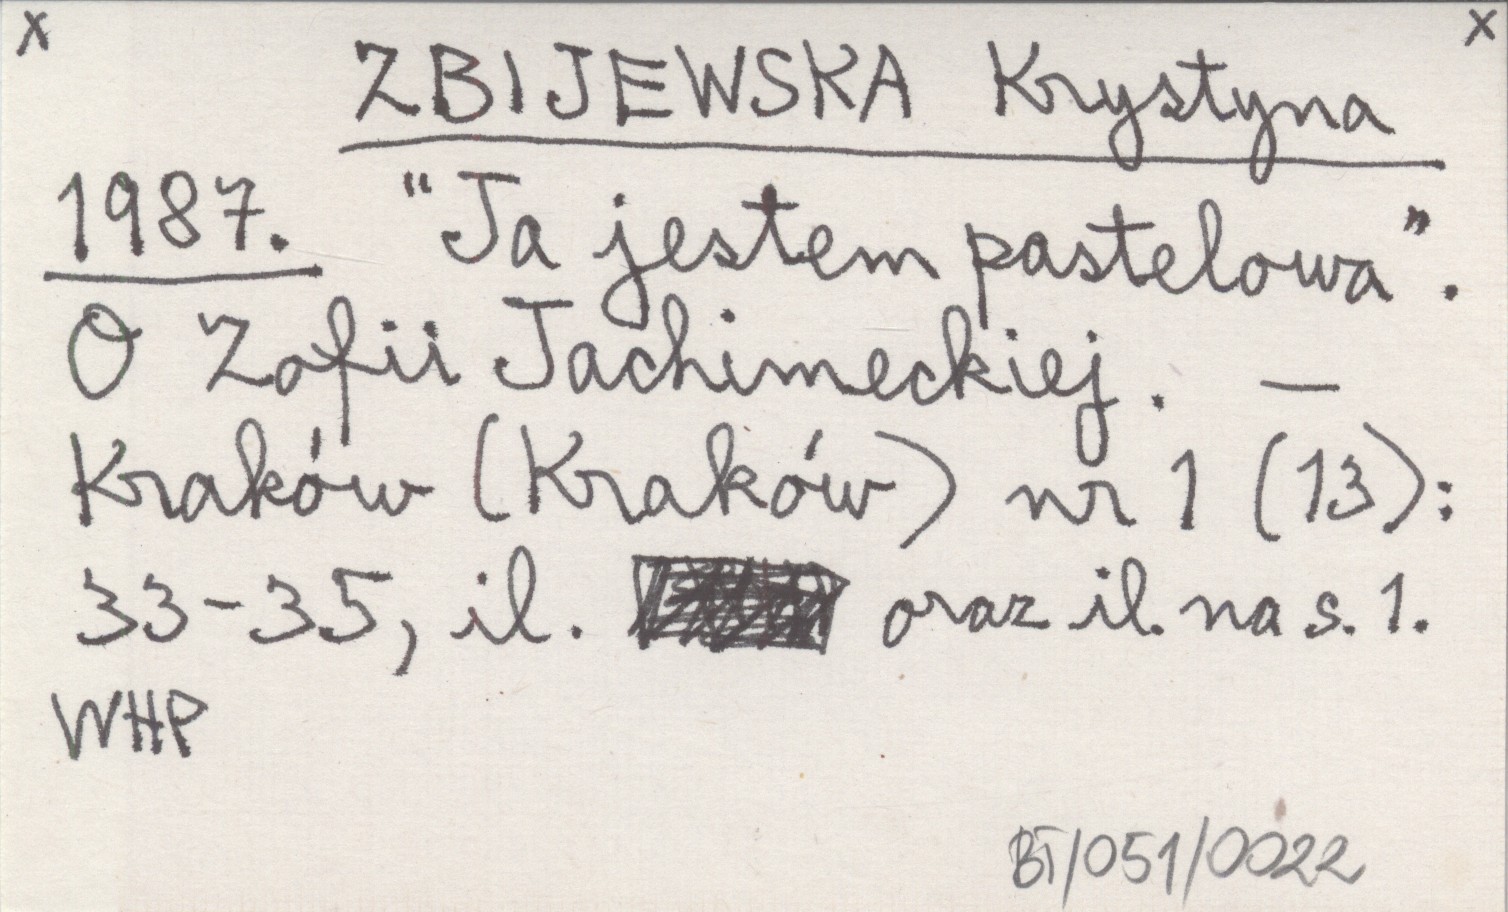 x x
ZBIJEWSKA Krystyna
1987. "Ja jestem pastelowa".
O Zofii Jachimeckiej. —
Kraków (Kraków) nr 1 (13):
33-35, il. oraz il. na s. 1.
WHP
BT/051/0022